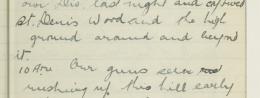 our Div. last night and captured
St. Denis Wood and the high
ground around and beyond
it.
10 Am Our guns
rushing up this hill early